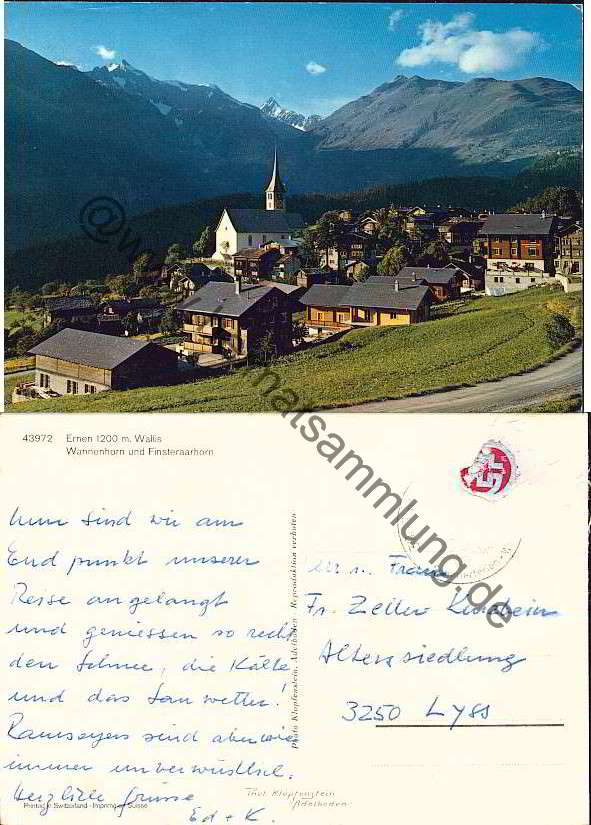 @www.heimatsammlung.de
43972 Ernen 1200 m. Wallis
Wannenhorn und Finsteraarhorn
Nun sind wir am
Endpunkt unserer
Reise angelangt
und geniessen so recht
den Schnee, die Kälte
und das Sauwetter!
Ramseyers sind aber wie
immer unverwüstlich.
Herzliche Grüsse
Ed + K.
Printed in Switzerland - Imprimé en Suisse
Photo Klopfenstein, Adelboden - Reproduktion verboten
Frau
Fr. Zeller
Alterssiedlung
3250 Lyss
Phot. Klopfenstein
Adelboden